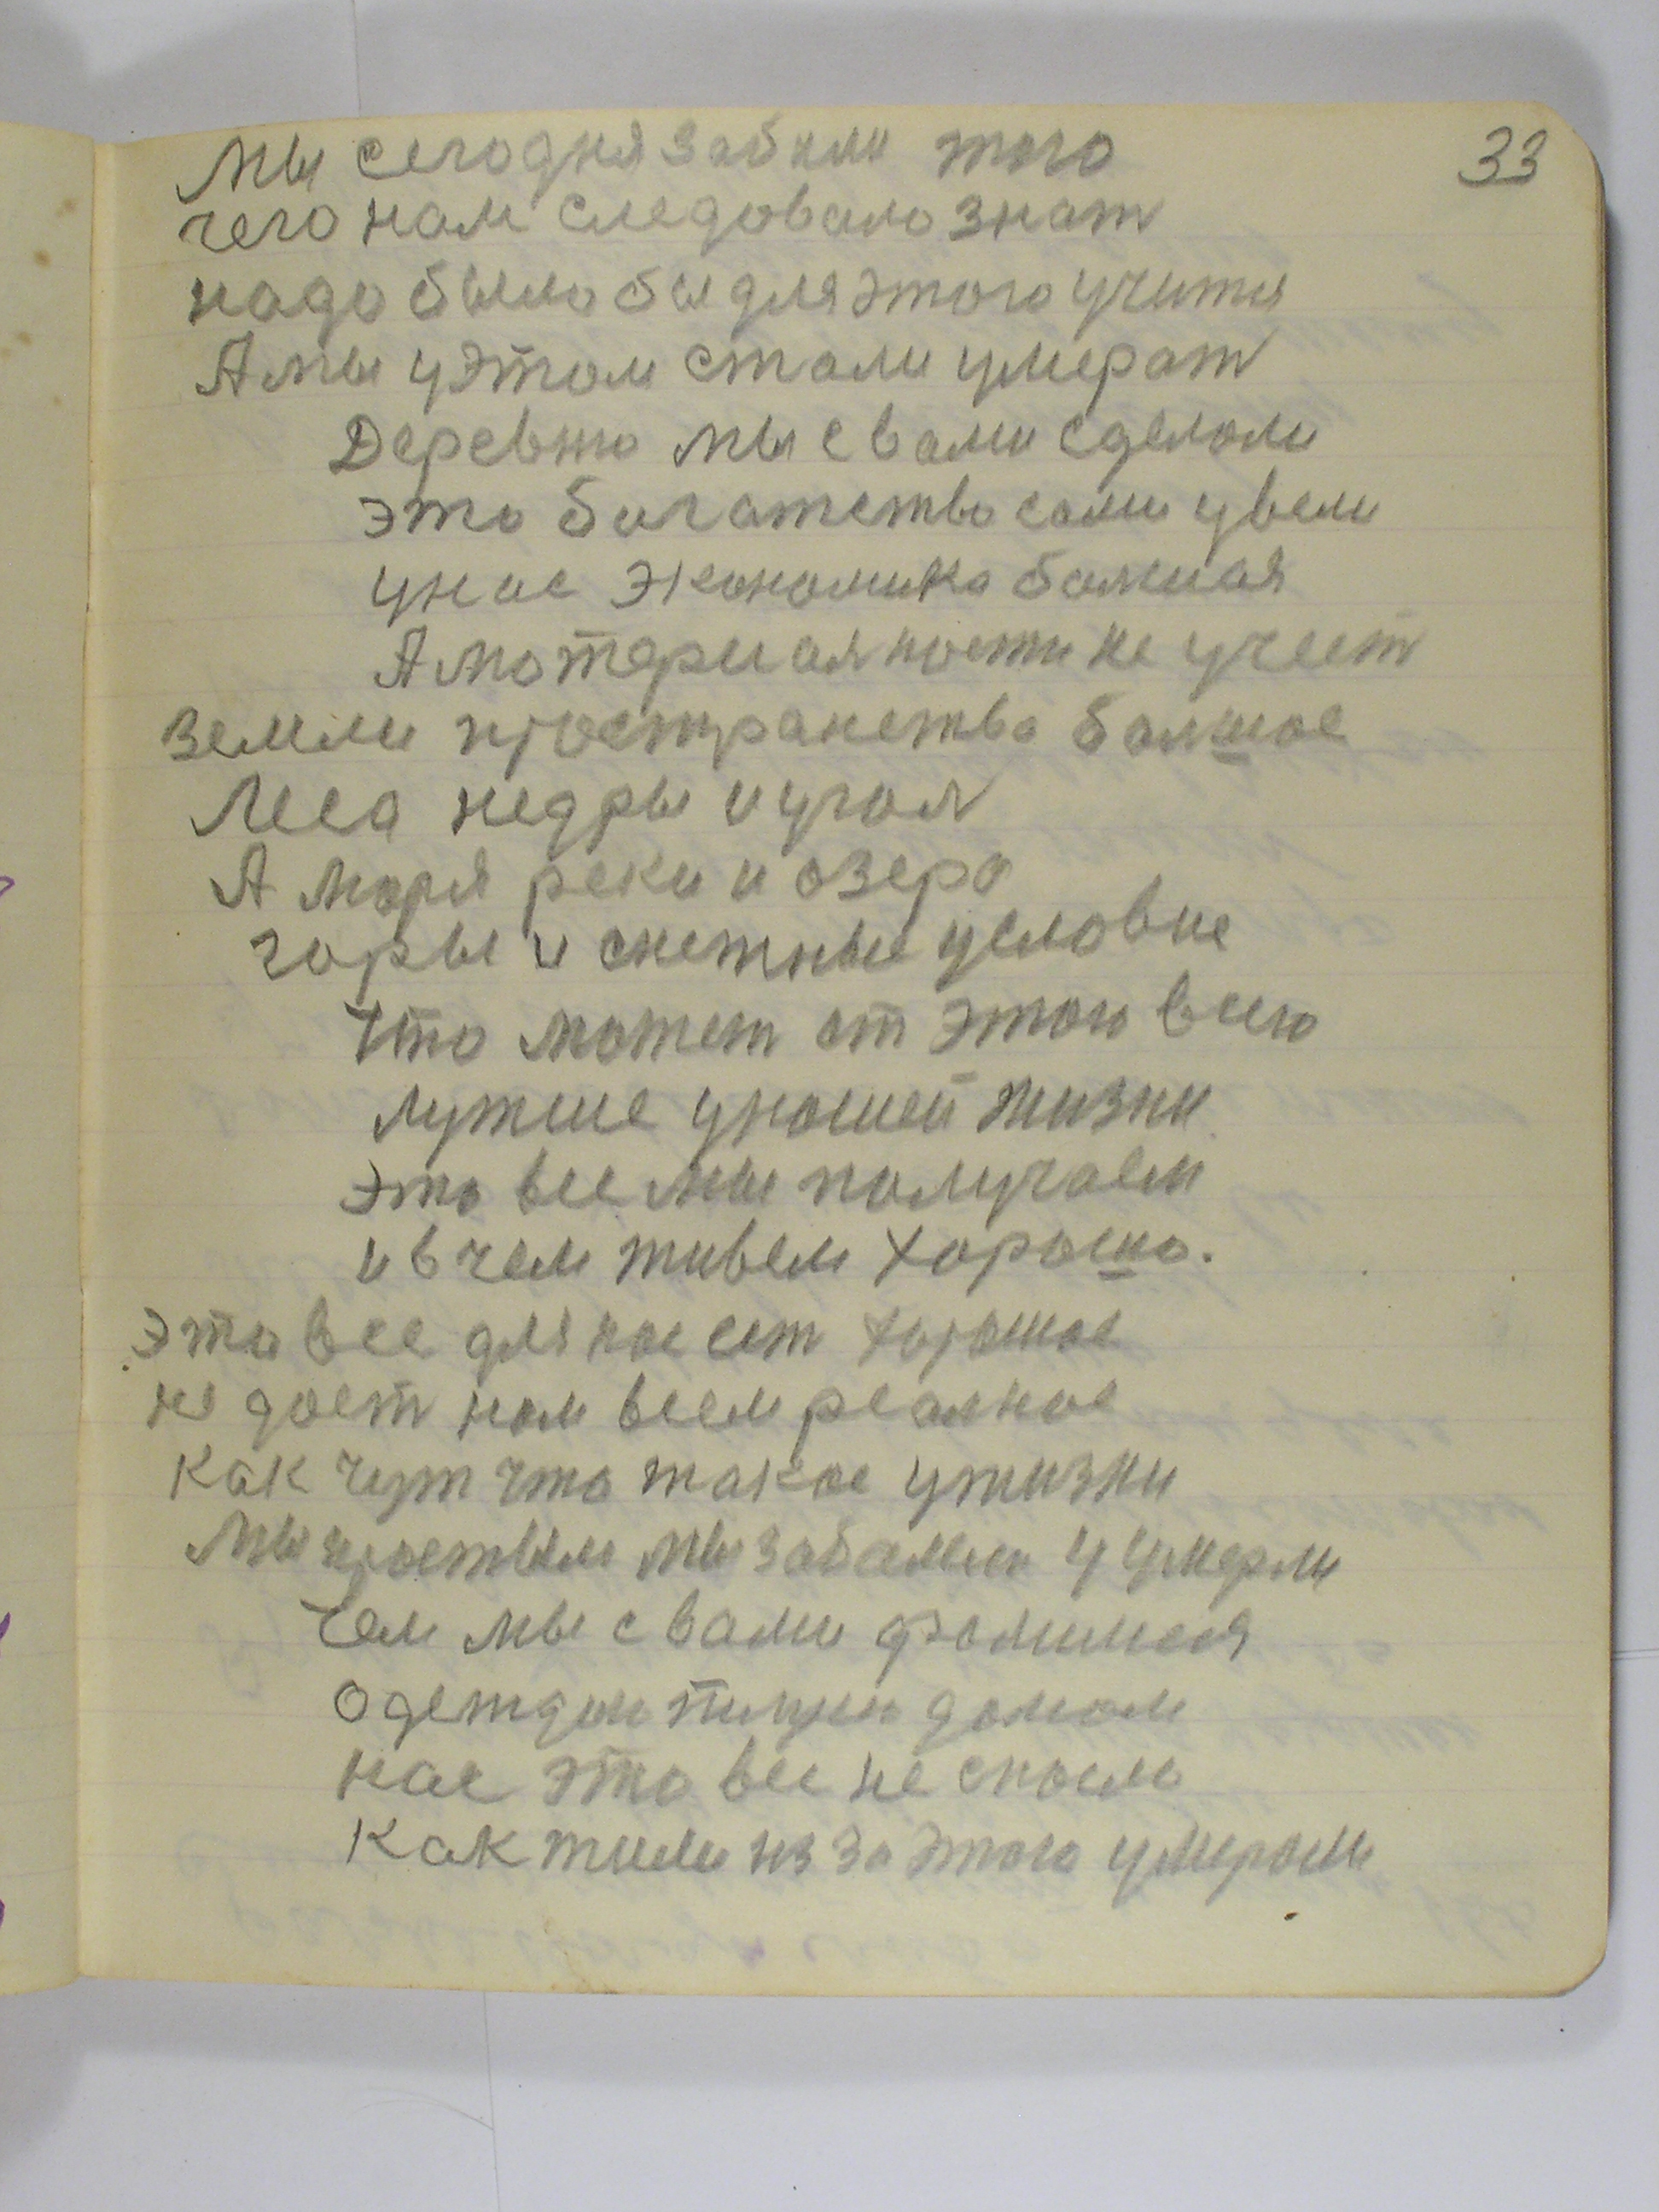 33
Мы сегодня забили того
чего нам следовало знат
надо было бы для этого учится
А мы у этом стали умерат
Деревню мы с вами сделали
это богатство сами увели
у нас экономика болшая
А материалности не учест
Земли пространство болшое
Леса недры и угол
А моря реки и озера
горы и снежные условие
Что может от этого всего
лутше у нашей жизни
это все мы получаем
и в чем живем хорошо.
Это все для нас ест хорошое
не дает нам всем реалное
Как чут что такое у жизни
Мы простыли мы заболели у умерли
Чем мы с вами фолимся
Одеждой пищей домом
нас это все не спасло
Как жили из за этого умерали